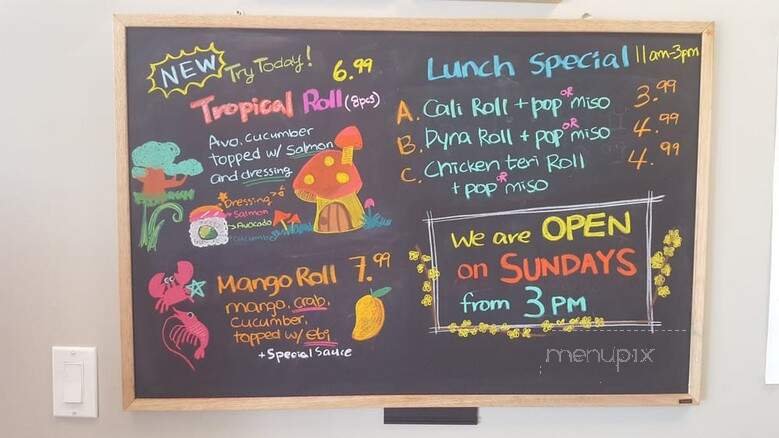 NEW Try Today! 6.99
Tropical Roll (8pcs)
Avo, Cucumber
topped w/ Salmon
and dressing
Dressing
Salmon
Avocado
Cucumber
Mango Roll 7.99
mango, crab,
Cucumber,
topped w/ ebi
+ Special Sauce
Lunch Special 11am-3pm
A. Cali Roll + pop OR miso 3.99
B. Dyna Roll + pop OR miso 4.99
C. Chicken teri Roll 4.99
+ pop OR miso
We are OPEN
on SUNDAYS
from 3 PM
menupix